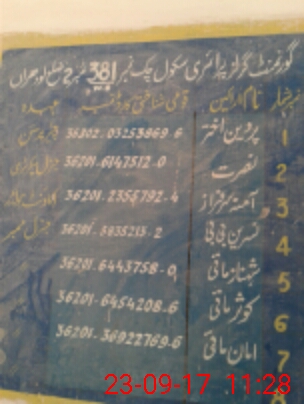 گورنمنٹ گرلز پرائمری سکول چک نمبر 381 ضلع لودھراں
نمبر شمار نام اراکین قومی شناختی کارڈ نمبر عہدہ
1 پروین اختر 36202-03253869-6 چیئر پرسن
2 نصرت 36201-6147512-0 جنرل سیکرٹری
3 آمنہ سرفراز 36201-2356792-4
4 نسرین بی بی 36201-5835213-2 جنرل ممبر
5 شہناز مائی 36201-6443758-0
6 کوثر مائی 36201-6454208-6
7 امان مائی 36201-36922769-6
8
23-09-17 11:28